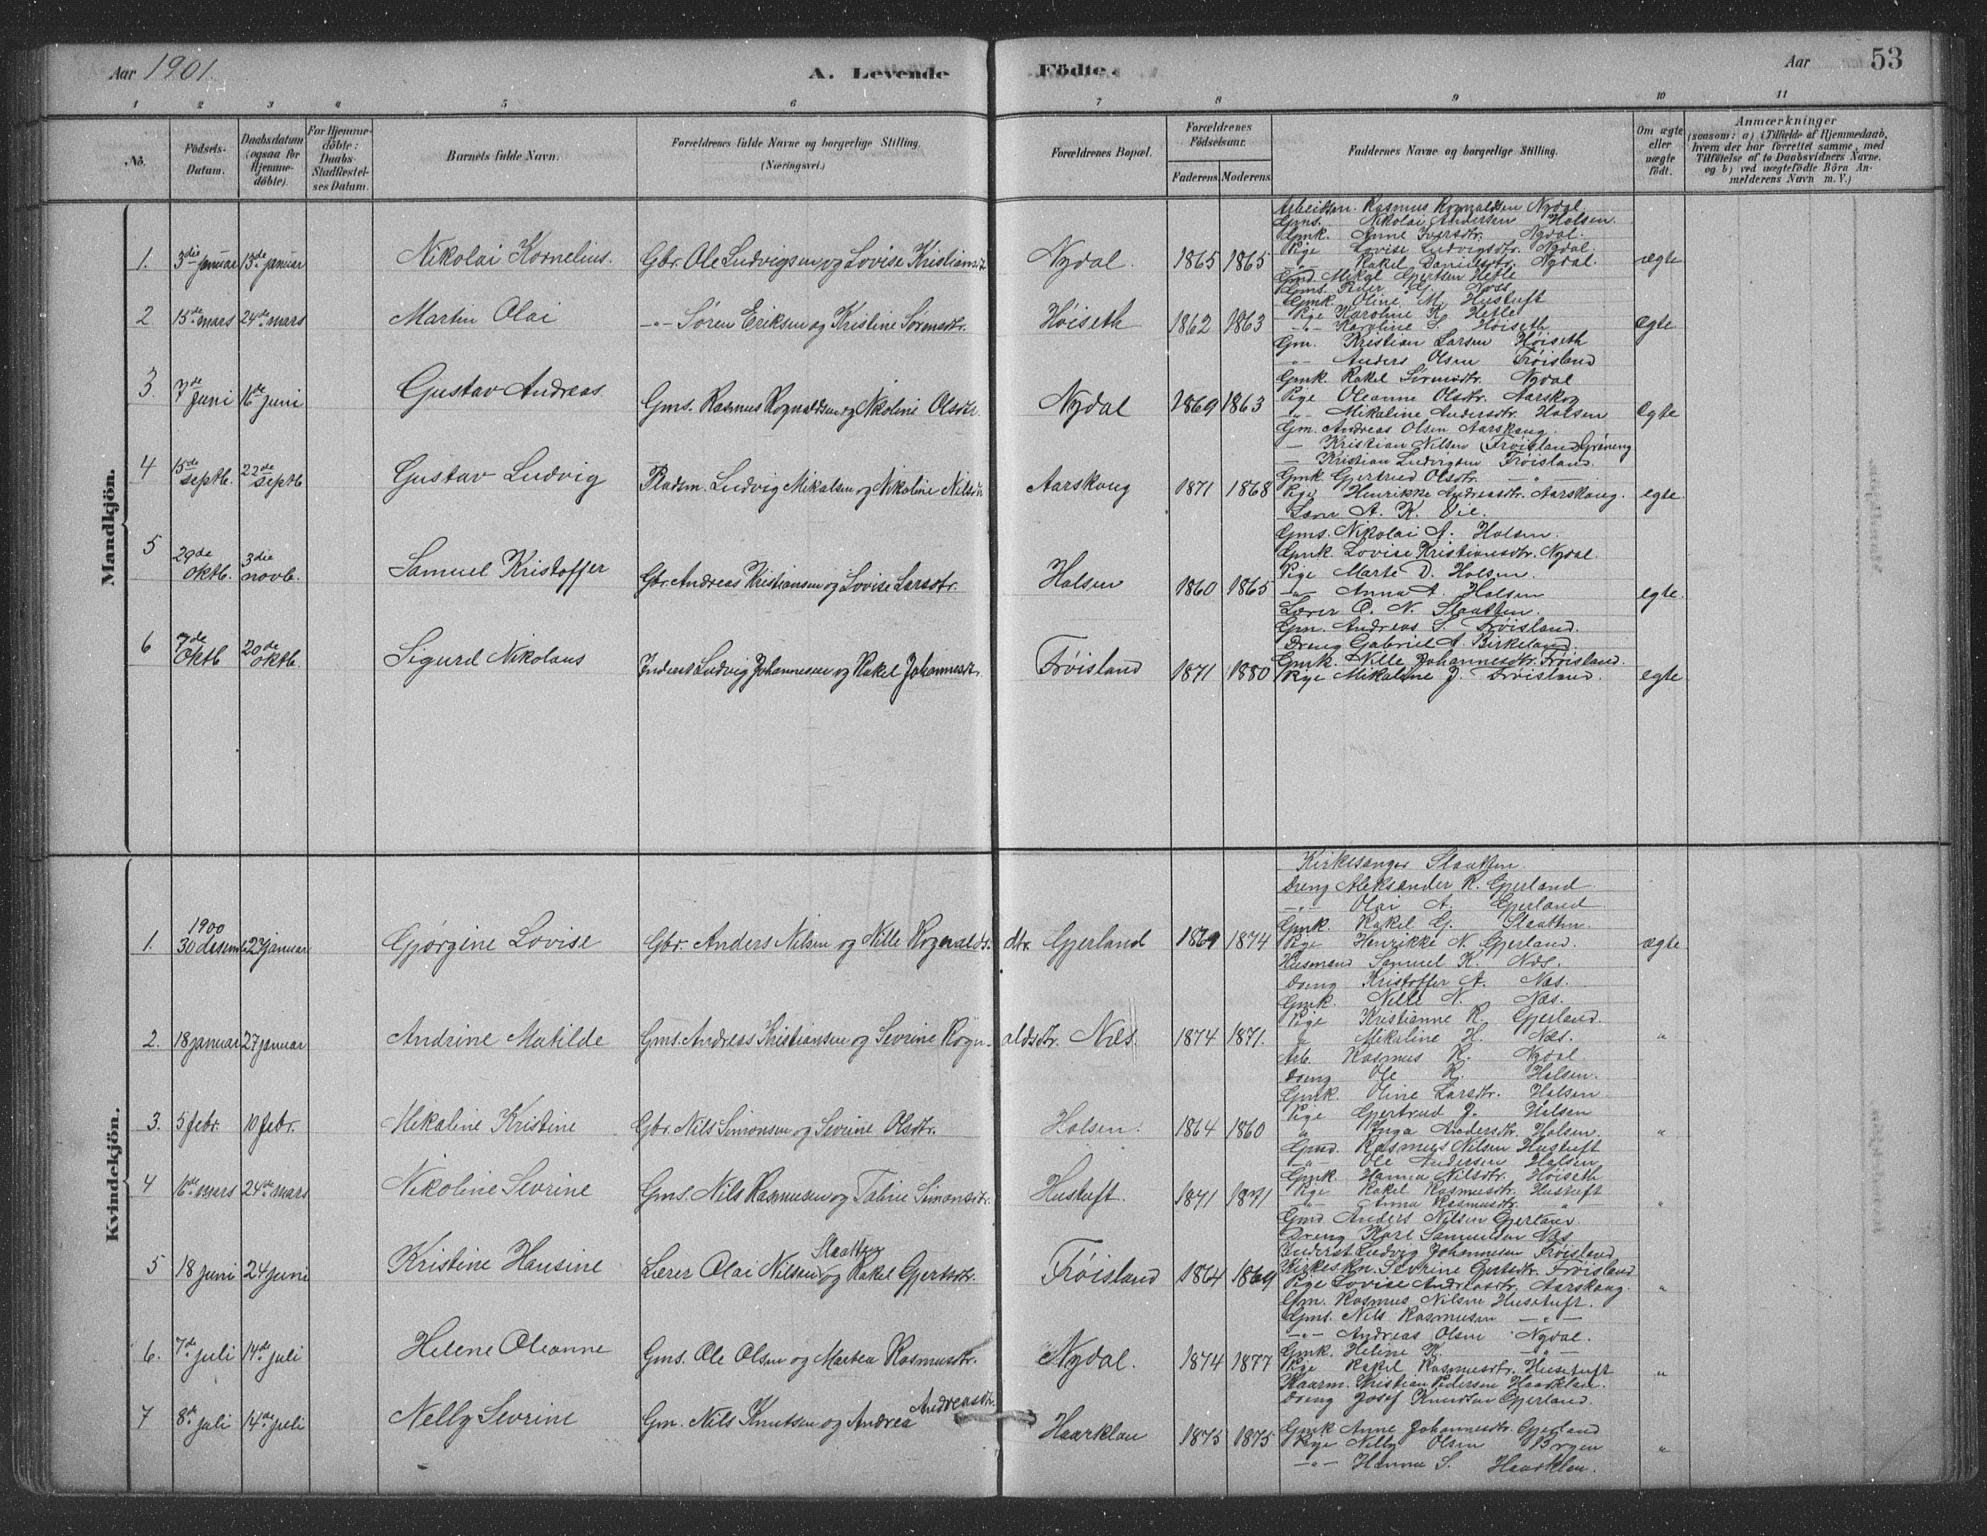 Aar 1901.
A. Levende Födte.
Aar 53
1 2 3 4 5 6 7 8 9 10 11
No.
Födsels-Datum.
Daabsdatum (ogsaa for Hjemmedöbte).
For Hjemmedöbte: Daabs-Stadfæstelses Datum.
Barnets fulde Navn.
Forældrenes fulde Navne og borgerlige Stilling.
(Næringsvei.)
Forældrenes Bopæl.
Forældrenes Födselsaar.
Faderens. Moderens.
Faddernes Navne og borgerlige Stilling.
Om ægte eller uægte födt.
Anmærkninger
(saasom: a) i Tilfælde af Hjemmedaab, hvem der har forrettet samme, med Tilföielse af to Daabsvidners Navne, og b) ved uægtefödte Börn Anmelderens Navn m. V.)
Mandkjön.
1. 3die januar 13de januar Nikolai Kornelius. Gbr. Ole Ludvigsen og Lovise Kristiansdt. Nydal. 1865 1865 ægte
Arbeidsm. Rasmus Rognaldsen Nydal.
Gms. Nikolai Andersen Halsen.
Gmk. Anne Iversdtr. Nydal.
Pige Lovise Ludvigsdtr. Nydal.
" Rakel Danielsdtr. Nydal.
2. 15de mars 24de mars Martin Olai -"- Søren Eriksen og Kristine Sørensdtr. Höiseth 1862 1863 Egte
Gmd. Mikal Gjertsen Hetle
Gms. Peder G. Næss
Gmk. Oline M. Hustuft
Pige Karoline K. Hetle
-"- Karoline S. Höiseth
3 7de juni 16de juni Gustav Andreas Gms. Rasmus Rognaldsen og Nikoline Olsdtr. Nydal 1869 1863 Egte
Gm. Kristian Larsen Höiseth
-"- Anders Olsen Tröisland
Gmk. Rakel Sörensdtr. Nydal
Pige Oleanne Olsdtr. Aarskog
-"- Mikaline Andersdtr. Halsen
4 15de septb. 22de septb Gustav Ludvig Pladsm. Ludvig Mikalsen og Nikoline Nilsdtr Aarskoug 1871 1868 egte
Gm. Andreas Olsen Aarskoug.
— Kristian Nilsen (Tröisland) Gröneng
— Kristian Ludvigsen Tröisland.
Gmk Gjertrud Olsdtr. -"-
Pige Henrikke Andreasdtr. Aarskoug.
5 29de oktb. 3die novb. Samuel Kristoffer Gbr. Andreas Kristiansen og Lovise Larsdtr. Halsen 1860 1865 egte.
Lærer A. K. Vie.
Gms. Nikolai A. Halsen.
Gmk. Lovise Kristiansdtr. Nydal.
Pige Marte D. Halsen.
-"- Anna A. Halsen
6 7de oktb 20de oktb. Sigurd Nikolaus Inderst Ludvig Johannesen og Rakel Johannesdt. Tröisland 1871 1880 egte
Lærer O. N. Slaatten.
Gm. Andreas S. Tröisland.
Dreng Gabriel A. Birkeland
Gmk. Nille Johannesdtr. Tröisland.
Pige Mikaline J. Tröisland.
Kvindekjön.
1. 1900 30 desemb. 27 januar Gjørgine Lovise Gbr. Anders Nilsen og Nille Rognaldsdtr. Gjerland 1869 1874 ægte
Kirkesanger Slaatten.
Dreng Aleksander R. Gjerland
-"- Olai A. Gjerland
Gmk. Rakel G. Slaatten
Pige Henrikke N. Gjerland.
2. 18 januar 27 januar Andrine Matilde Gms. Andreas Kristiansen og Sevrine Rognaldsdtr. Næs. 1874 1871. "
Husmand Samuel K. Næs.
Dreng Kristoffer A. Næs.
Gmk. Nille N. Næs.
Pige Kristianne R. Gjerland.
" Mikaline H. Næs.
3. 5 febr. 10 febr. Mikaline Kristine Gbr. Nils Simonsen og Sevrine Olsdtr. Halsen. 1864 1860 "
Arb. Rasmus R. Nydal.
Dreng Ole R. Halsen.
Gmk. Oline Larsdtr. Halsen
Pige Gjertrud J. Halsen
" Inga Andersdtr. Halsen.
4 16de mars 24de mars Nikoline Sevrine Gms. Nils Rasmusen og Taline Simonsdt. Hustuft. 1871 1871 "
Gmd. Rasmus Nilsen Hustuft
-"- Ole Andersen Halsen
Gmk. Hanna Nilsdtr. Höiseth
Pige Rakel Rasmusdtr. Hustuft
-"- Anna Rasmusdtr. -"-
5 18 juni 24 juni Kristine Hansine Lærer Olai Nilsen Slaatten og Rakel Gjertsdtr. Tröisland 1864 1869 "
Gmd Anders Nilsen Gjerland
Dreng Karl Samuelsen Næs
Inderst Ludvig Johannesen Tröisland
Kirkeskn. Sevrine Gjertsdtr. Tröisland
Pige Lovise Andreasdtr. Aarskoug.
6. 7de juli 14de juli Helene Oleanne Gms. Ole Olsen og Martea Rasmusdtr. Nydal. 1874 1877 "
Gm. Rasmus Nilsen Husetuft.
Gms. Nils Rasmusen -"-
-"- Andreas Olsen Nydal.
Gmk. Heline K. -"-
Pige Rakel Rasmusdtr. Husetuft
7 8de juli 14de juli Nelly Sevrine Gm. Nils Knutsen og Andrea Andreasdtr. Haarklau 1875 1875 "
Kaarm. Kristian Pedersen Haarklau.
Dreng Josef Knudsen Gjerland.
Gmk Anne Johannesdtr. Gjerland
Pige Nelly Olsen Brgen
-"- Hanna S. Haarklau.